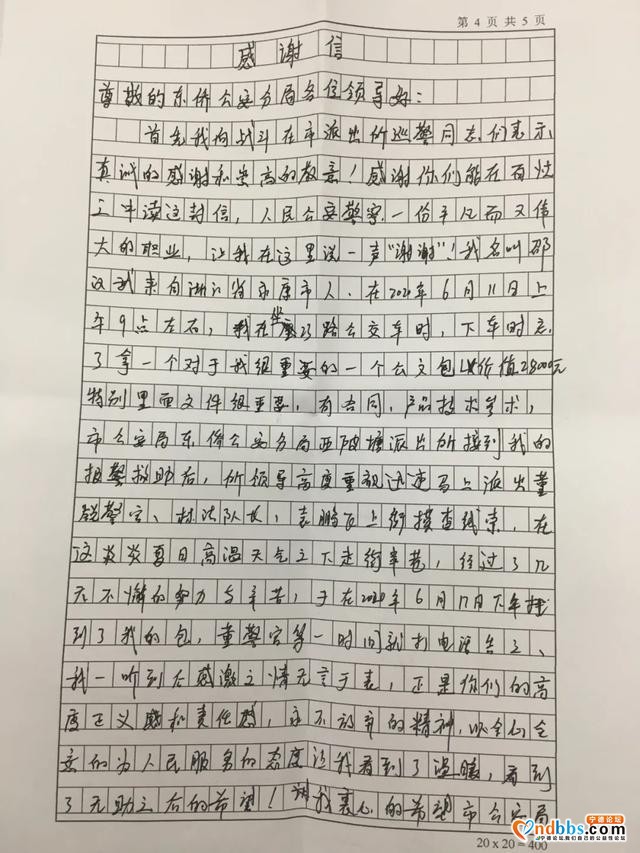 第 4 页 共 5 页
感谢信
尊敬的东侨公安分局各位领导好：
首先我向战斗在市派出所巡警同志们表示
真诚的感谢和崇高的敬意！感谢你们能在百忙
之中读这封信，人民公安警察一份平凡而又伟
大的职业，让我在这里说一声"谢谢"！我名叫邵
来自浙江省永康市人．在2020年6月11日上
午9点左右，我在坐路公交车时，下车时忘
了拿一个对于我很重要的一个公文包价值28000元
特别里面文件很重要，有合同，产品技术等
市公安局东侨公安分局派出所接到我的
报警救助后，所领导高度重视迅速马上派出董
警官、林队长，袁鹏飞上街摸查线索，在
这炎炎夏日高温天气之下走街串巷，经过了几
天不懈的努力与辛苦，于在2020年6月17日下午找
到了我的包，董警官第一时间就打电话告之、
我一听到后感激之情无言于表，正是你们的高
度正义感和责任感，永不放弃的精神，以全心全
意的为人民服务的态度让我看到了温暖，看到
了无助之后的希望！我衷心的希望市公安局
20 x 20 = 400
宁德论坛
ndbbs.com
宁德论坛,我们自己的公益性论坛